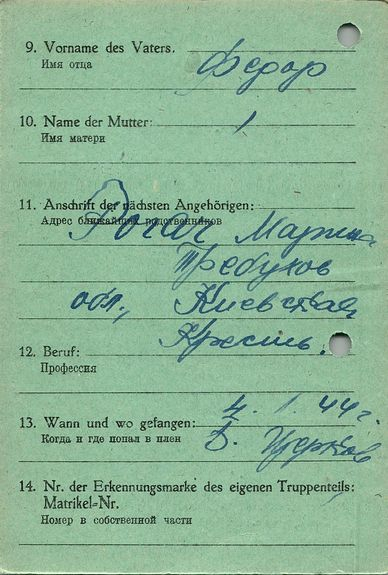 9. Vorname des Vaters.
Имя отца
Федор
10. Name der Mutter:
Имя матери
11. Anschrift der nächsten Angehörigen:
Адрес ближайших родственников
Рогач Марина
Требухов
обл., Киевская
12. Beruf:
Крестьян.
Профессия
13. Wann und wo gefangen:
4. 1. 44 г.
Когда и где попал в плен
Б. Церков
14. Nr. der Erkennungsmarke des eigenen Truppenteils:
Matrikel=Nr.
Номер в собственной части